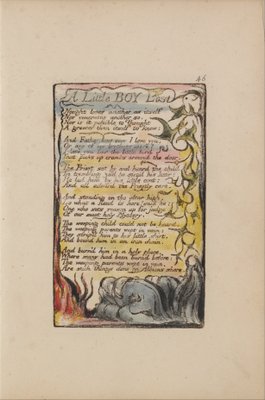 46
A Little BOY Lost
Nought loves another as itself
Nor venerates another so,
Nor is it possible to Thought
A greater than itself to know:
And Father, how can I love you,
Or any of my brothers more?
I love you like the little bird
That picks up crumbs around the door.
The Priest sat by and heard the child,
In trembling zeal he siez'd his hair:
He led him by his little coat:
And all admir'd the Priestly care.
And standing on the altar high,
Lo what a fiend is here! said he:
One who sets reason up for judge
Of our most holy Mystery.
The weeping child could not be heard,
The weeping parents wept in vain:
They strip'd him to his little shirt,
And bound him in an iron chain.
And burn'd him in a holy place,
Where many had been burn'd before:
The weeping parents wept in vain,
Are such things done on Albions shore.